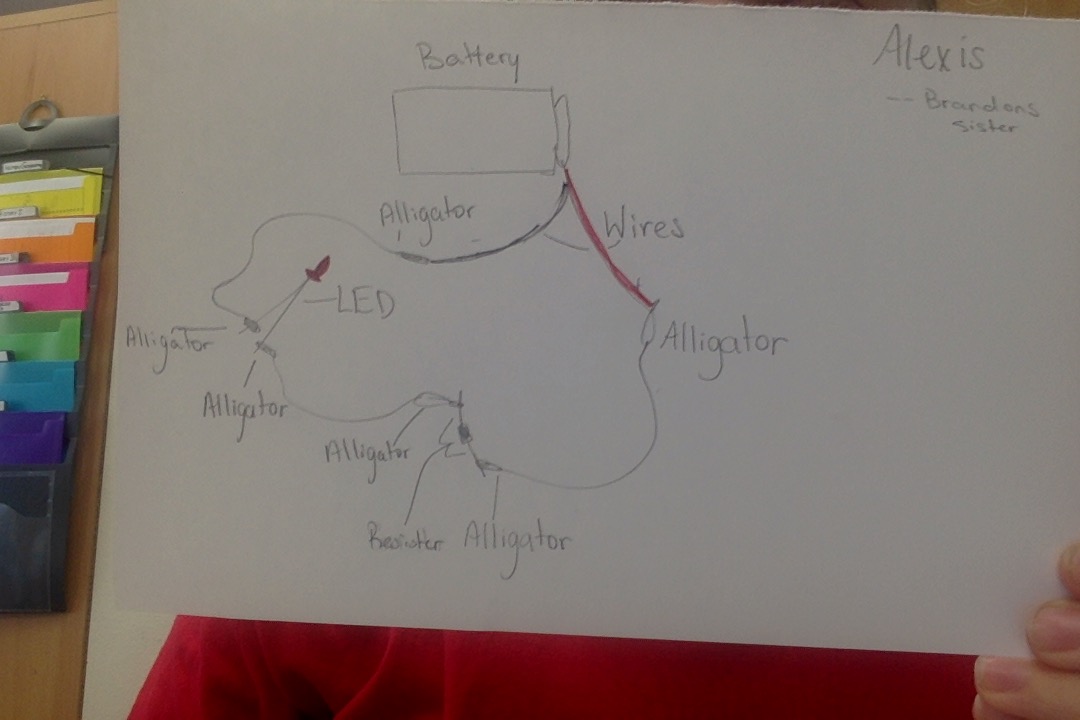 Alexis
-- Brandons
sister
Battery
Alligator
Wires
LED
Alligator
Alligator
Alligator
Alligator
Resister
Alligator